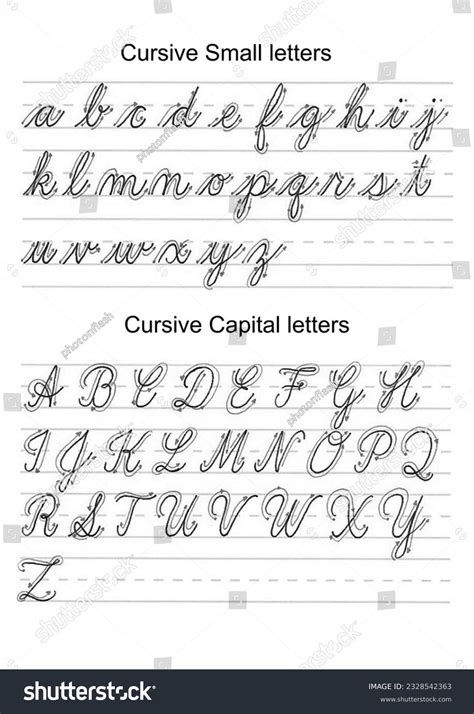 Cursive Small letters
a b c d e f g h i j
k l m n o p q r s t
u v w x y z
Cursive Capital letters
A B C D E F G H
I J K L M N O P Q
R S T U V W X Y
Z
shutterstock
photonflash
shutterstock
IMAGE ID: 2328542363
www.shutterstock.com